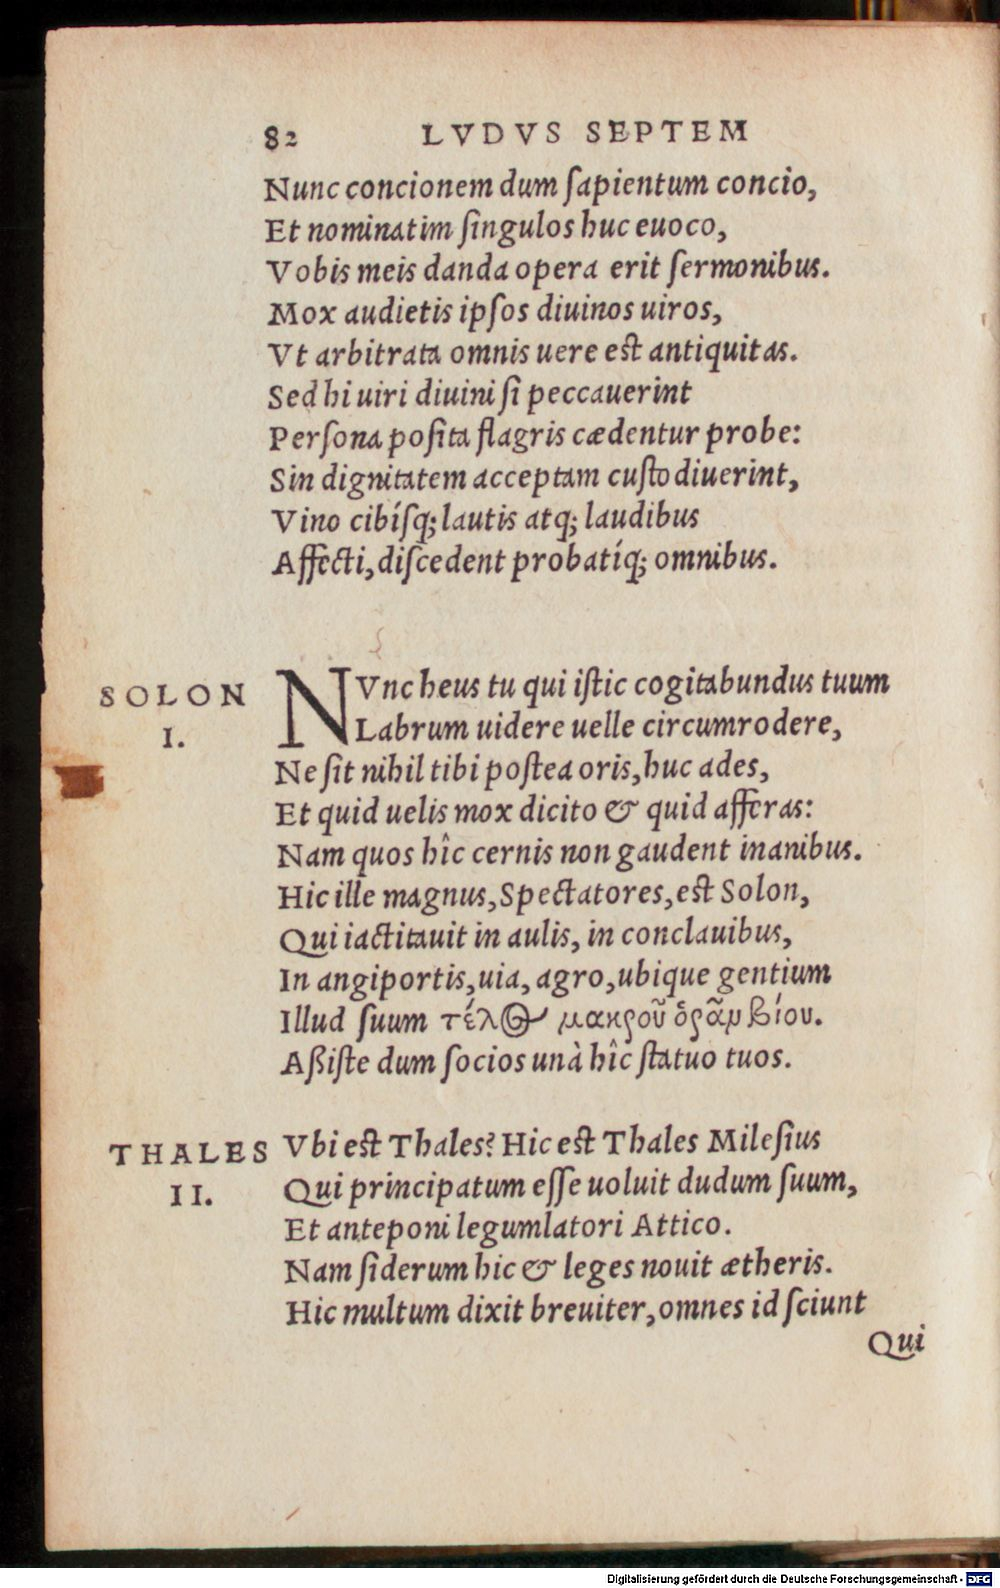 82 LVDVS SEPTEM
Nunc concionem dum ſapientum concio,
Et nominatim ſingulos huc euoco,
Vobis meis danda opera erit ſermonibus.
Mox audietis ipſos diuinos uiros,
Vt arbitrata omnis uere est antiquitas.
Sed hi uiri diuini ſi peccauerint
Perſona poſita flagris cædentur probe:
Sin dignitatem acceptam cuſtodiuerint,
Vino cibíſq; lautis atq; laudibus
Affecti, diſcedent probatíq; omnibus.
SOLON I.
NVnc heus tu qui iſtic cogitabundus tuum
Labrum uidere uelle circumrodere,
Ne ſit nihil tibi poſtea oris, huc ades,
Et quid uelis mox dicito & quid afferas:
Nam quos hîc cernis non gaudent inanibus.
Hic ille magnus, Spectatores, est Solon,
Qui iactitauit in aulis, in conclauibus,
In angiportis, uia, agro, ubique gentium
Illud ſuum τέλος μακροῦ ὁρᾶμ βίου.
Aßiſte dum ſocios unà hîc ſtatuo tuos.
THALES II.
Vbi est Thales? Hic est Thales Mileſius
Qui principatum eſſe uoluit dudum ſuum,
Et anteponi legumlatori Attico.
Nam ſiderum hic & leges nouit ætheris.
Hic multum dixit breuiter, omnes id ſciunt
Qui
Digitalisierung gefördert durch die Deutsche Forschungsgemeinschaft - DFG